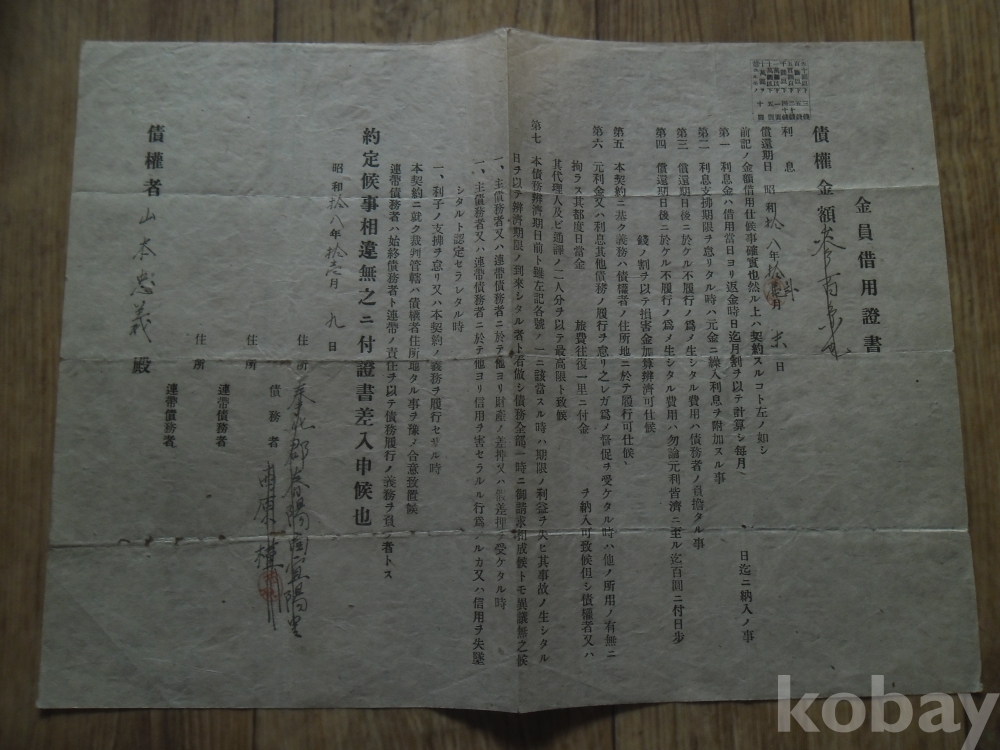 金員借用證書
債權金額参百圓也
利息
償還期日 昭和拾八年拾貳月 日
前記ノ金額借用仕候事確實也然ル上ハ契約スルコト左ノ如シ
第一 利息金ハ借用當日ヨリ返金時日迄月割ヲ以テ計算シ每月 日迄ニ納入ノ事
第二 利息支拂期限ヲ怠リタル時ハ元金ニ繰入利息ヲ附加スル事
第三 償還期日後ニ於ケル不履行ノ爲メ生シタル費用ハ債務者ノ負擔タル事
第四 償還期日後ニ於ケル不履行ノ爲メ生シタル費用ハ勿論元利皆濟ニ至ル迄百圓ニ付日步
錢ノ割ヲ以テ損害金加算辨濟可仕候
第五 本契約ニ基ク義務ハ債權者ノ住所地ニ於テ履行可仕候
第六 元利金又ハ利息其他債務ノ履行ヲ怠リ之レガ爲メ督促ヲ受ケタル時ハ他ノ所用ノ有無ニ
拘ラス其都度日當金 旅費往復一里ニ付金 ヲ納入可致候但シ債權者又ハ
其代理人及ビ通譯ノ二人分ヲ以テ最高限ト致候
第七 本債務辨濟期日前ト雖左記各號ノ一ニ該當スル時ハ期限ノ利益ヲ失ヒ其事故ノ生シタル
日ヲ以テ辨濟期限ノ到來シタル者ト看做シ債務全部一時ニ御請求相成候トモ異議無之候
一、主債務者又ハ連帶債務者ニ於テ他ヨリ財產ノ差押又ハ假差押ヲ受ケタル時
一、主債務者又ハ連帶債務者ニ於テ他ヨリ信用ヲ害セラルル行爲 ルカ又ハ信用ヲ失墜
シタルト認定セラレタル時
一、利子ノ支拂ヲ怠リ又ハ本契約ノ義務ヲ履行セザル時
本契約ニ就ク裁判管轄ハ債權者住所地タル事ヲ豫メ合意致置候
連帶債務者ハ始終債務者ト連帶ノ責任ヲ以テ債務履行ノ義務ヲ負フ者トス
約定候事相違無之ニ付證書差入申候也
昭和拾八年拾 月九日
住所 奉化郡春陽面宜陽里
債務者 南原
住所
連帶債務者
住所
連帶債務者
債權者 山本忠義 殿
kobay